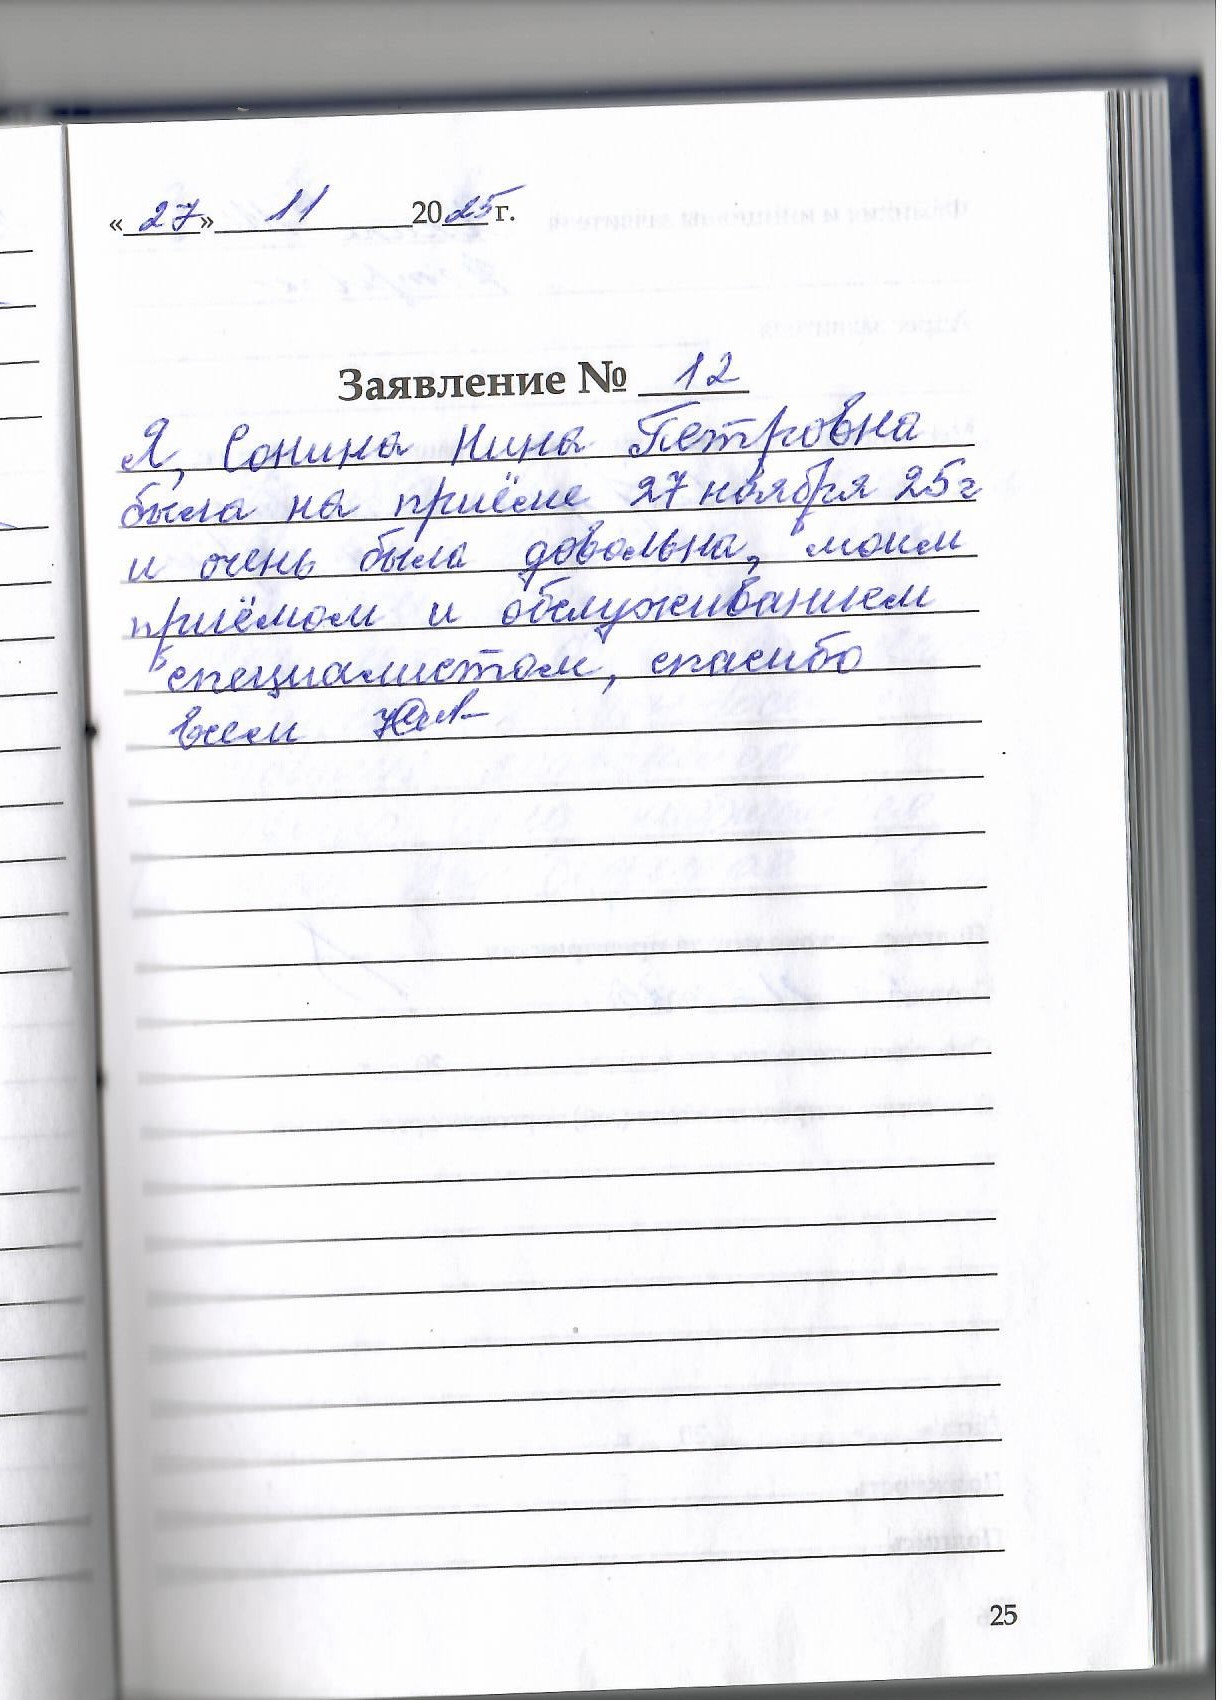 « 27 » 11 2025 г.
Заявление № 12
Я, Сонина Нина Петровна
была на приёме 27 ноября 25г
и очень была довольна, моим
приёмом и обслуживанием
специалистом, спасибо
всем
25